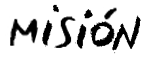 MISIÓN